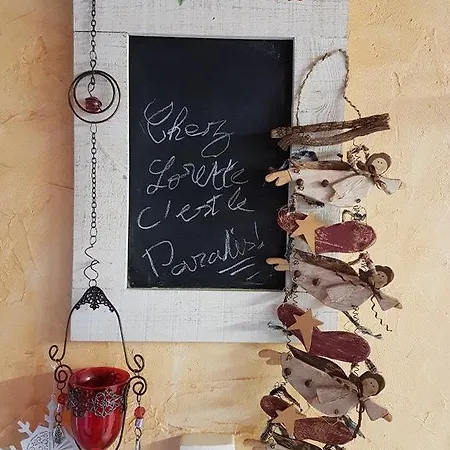 Cherz
Lorette
c'est le
Paradis!